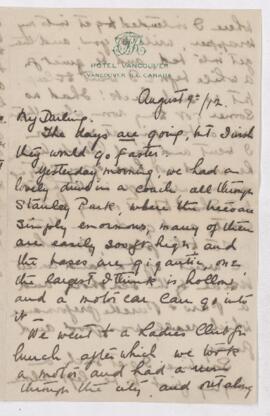 HOTEL VANCOUVER
VANCOUVER B.C. CANADA
August 9th/12.
My Darling.
The days are going, but I wish
they would go faster.
Yesterday morning, we had a
lovely drive in a coach all through
Stanley Park, where the trees are
simply enormous, many of them
are easily 200ft high, and
the bases are gigantic, one
the largest I think is hollow
and a motor car can go into
it
We went to a Ladies Club for
lunch, after which we took
a motor and had a run
through the city, and out along